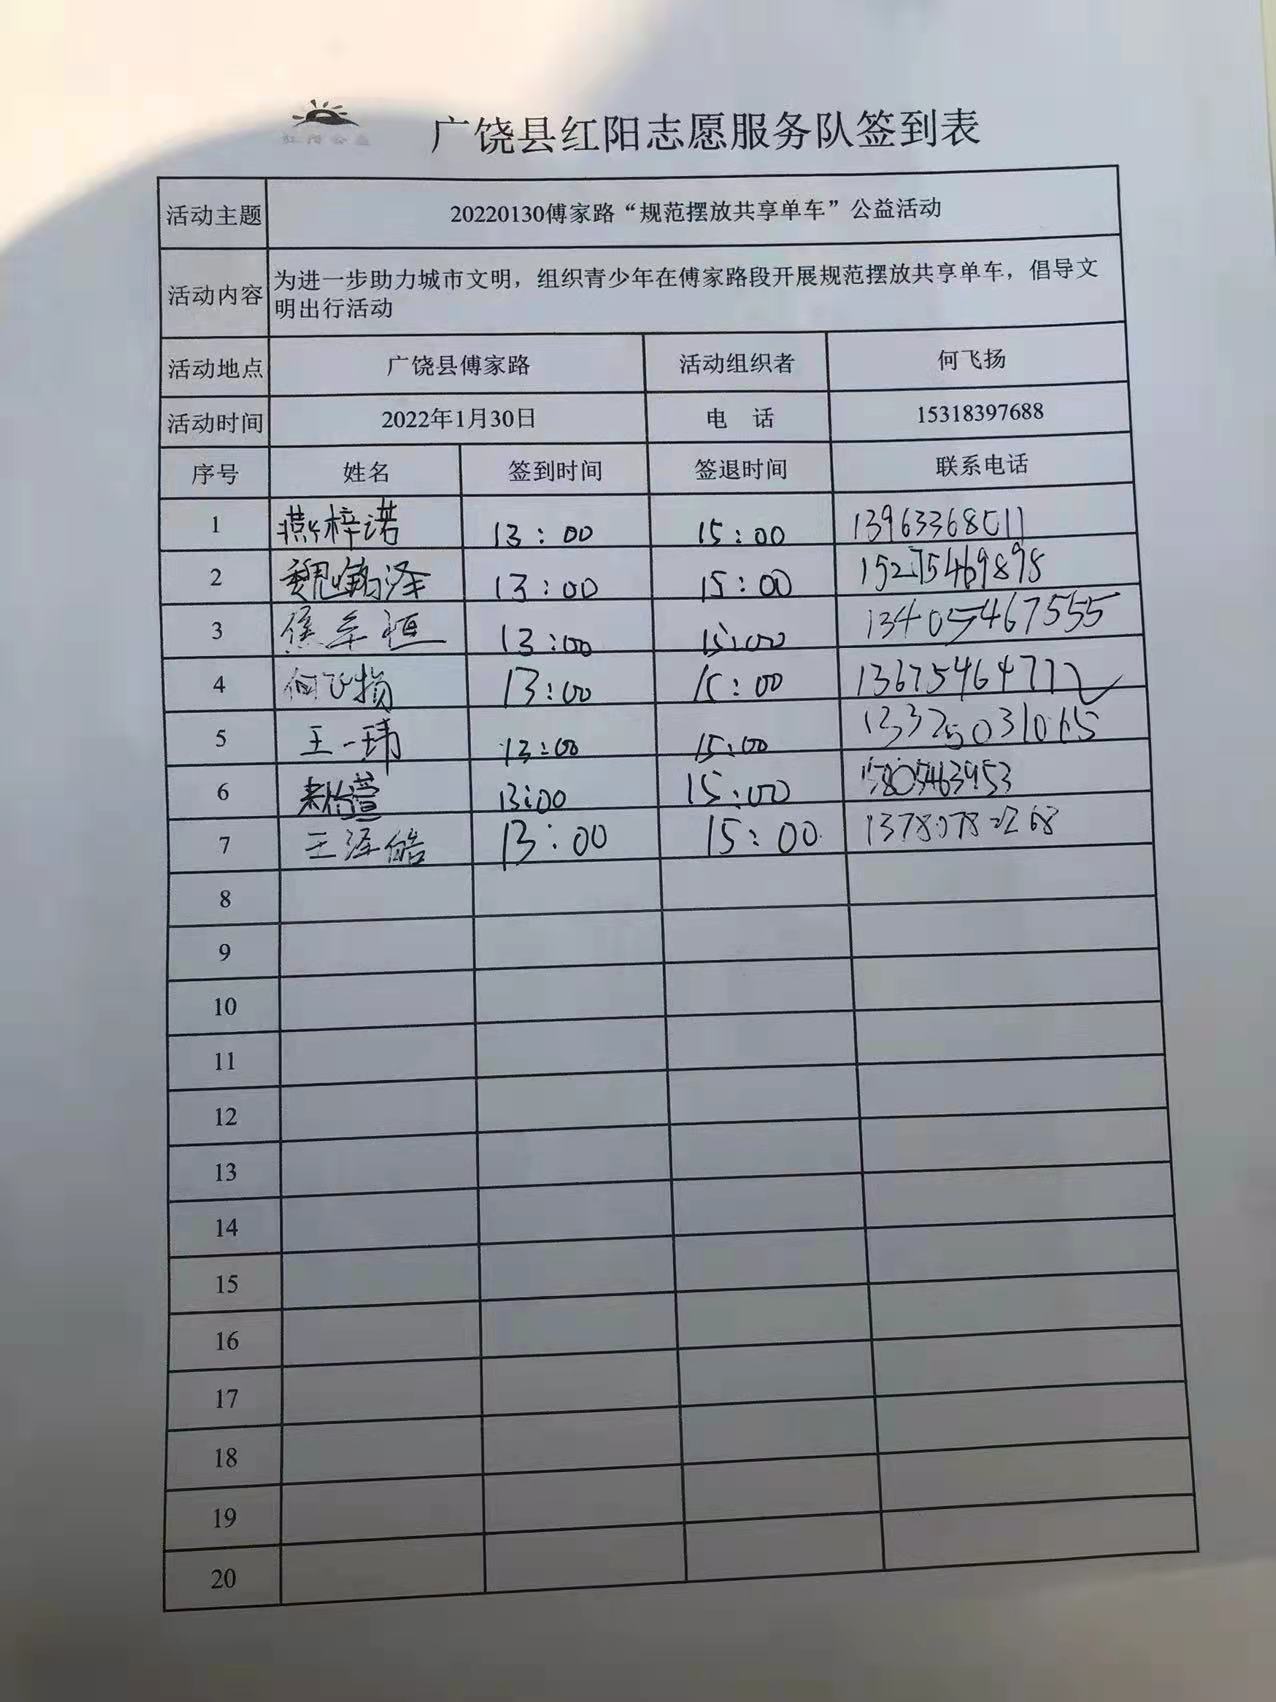 红阳公益
广饶县红阳志愿服务队签到表
活动主题 20220130傅家路“规范摆放共享单车”公益活动
活动内容 为进一步助力城市文明，组织青少年在傅家路段开展规范摆放共享单车，倡导文
明出行活动
活动地点 广饶县傅家路 活动组织者 何飞扬
活动时间 2022年1月30日 电 话 15318397688
序号 姓名 签到时间 签退时间 联系电话
1 燕梓诺 13:00 15:00 13963368011
2 魏 泽 13:00 15:00 15275469898
3 13:00 15:00 13405467555
4 何飞扬 13:00 15:00 13675464772
5 王一玮 13:00 15:00 13325031065
6 13:00 15:00
7 王泽皓 13:00 15:00
8
9
10
11
12
13
14
15
16
17
18
19
20